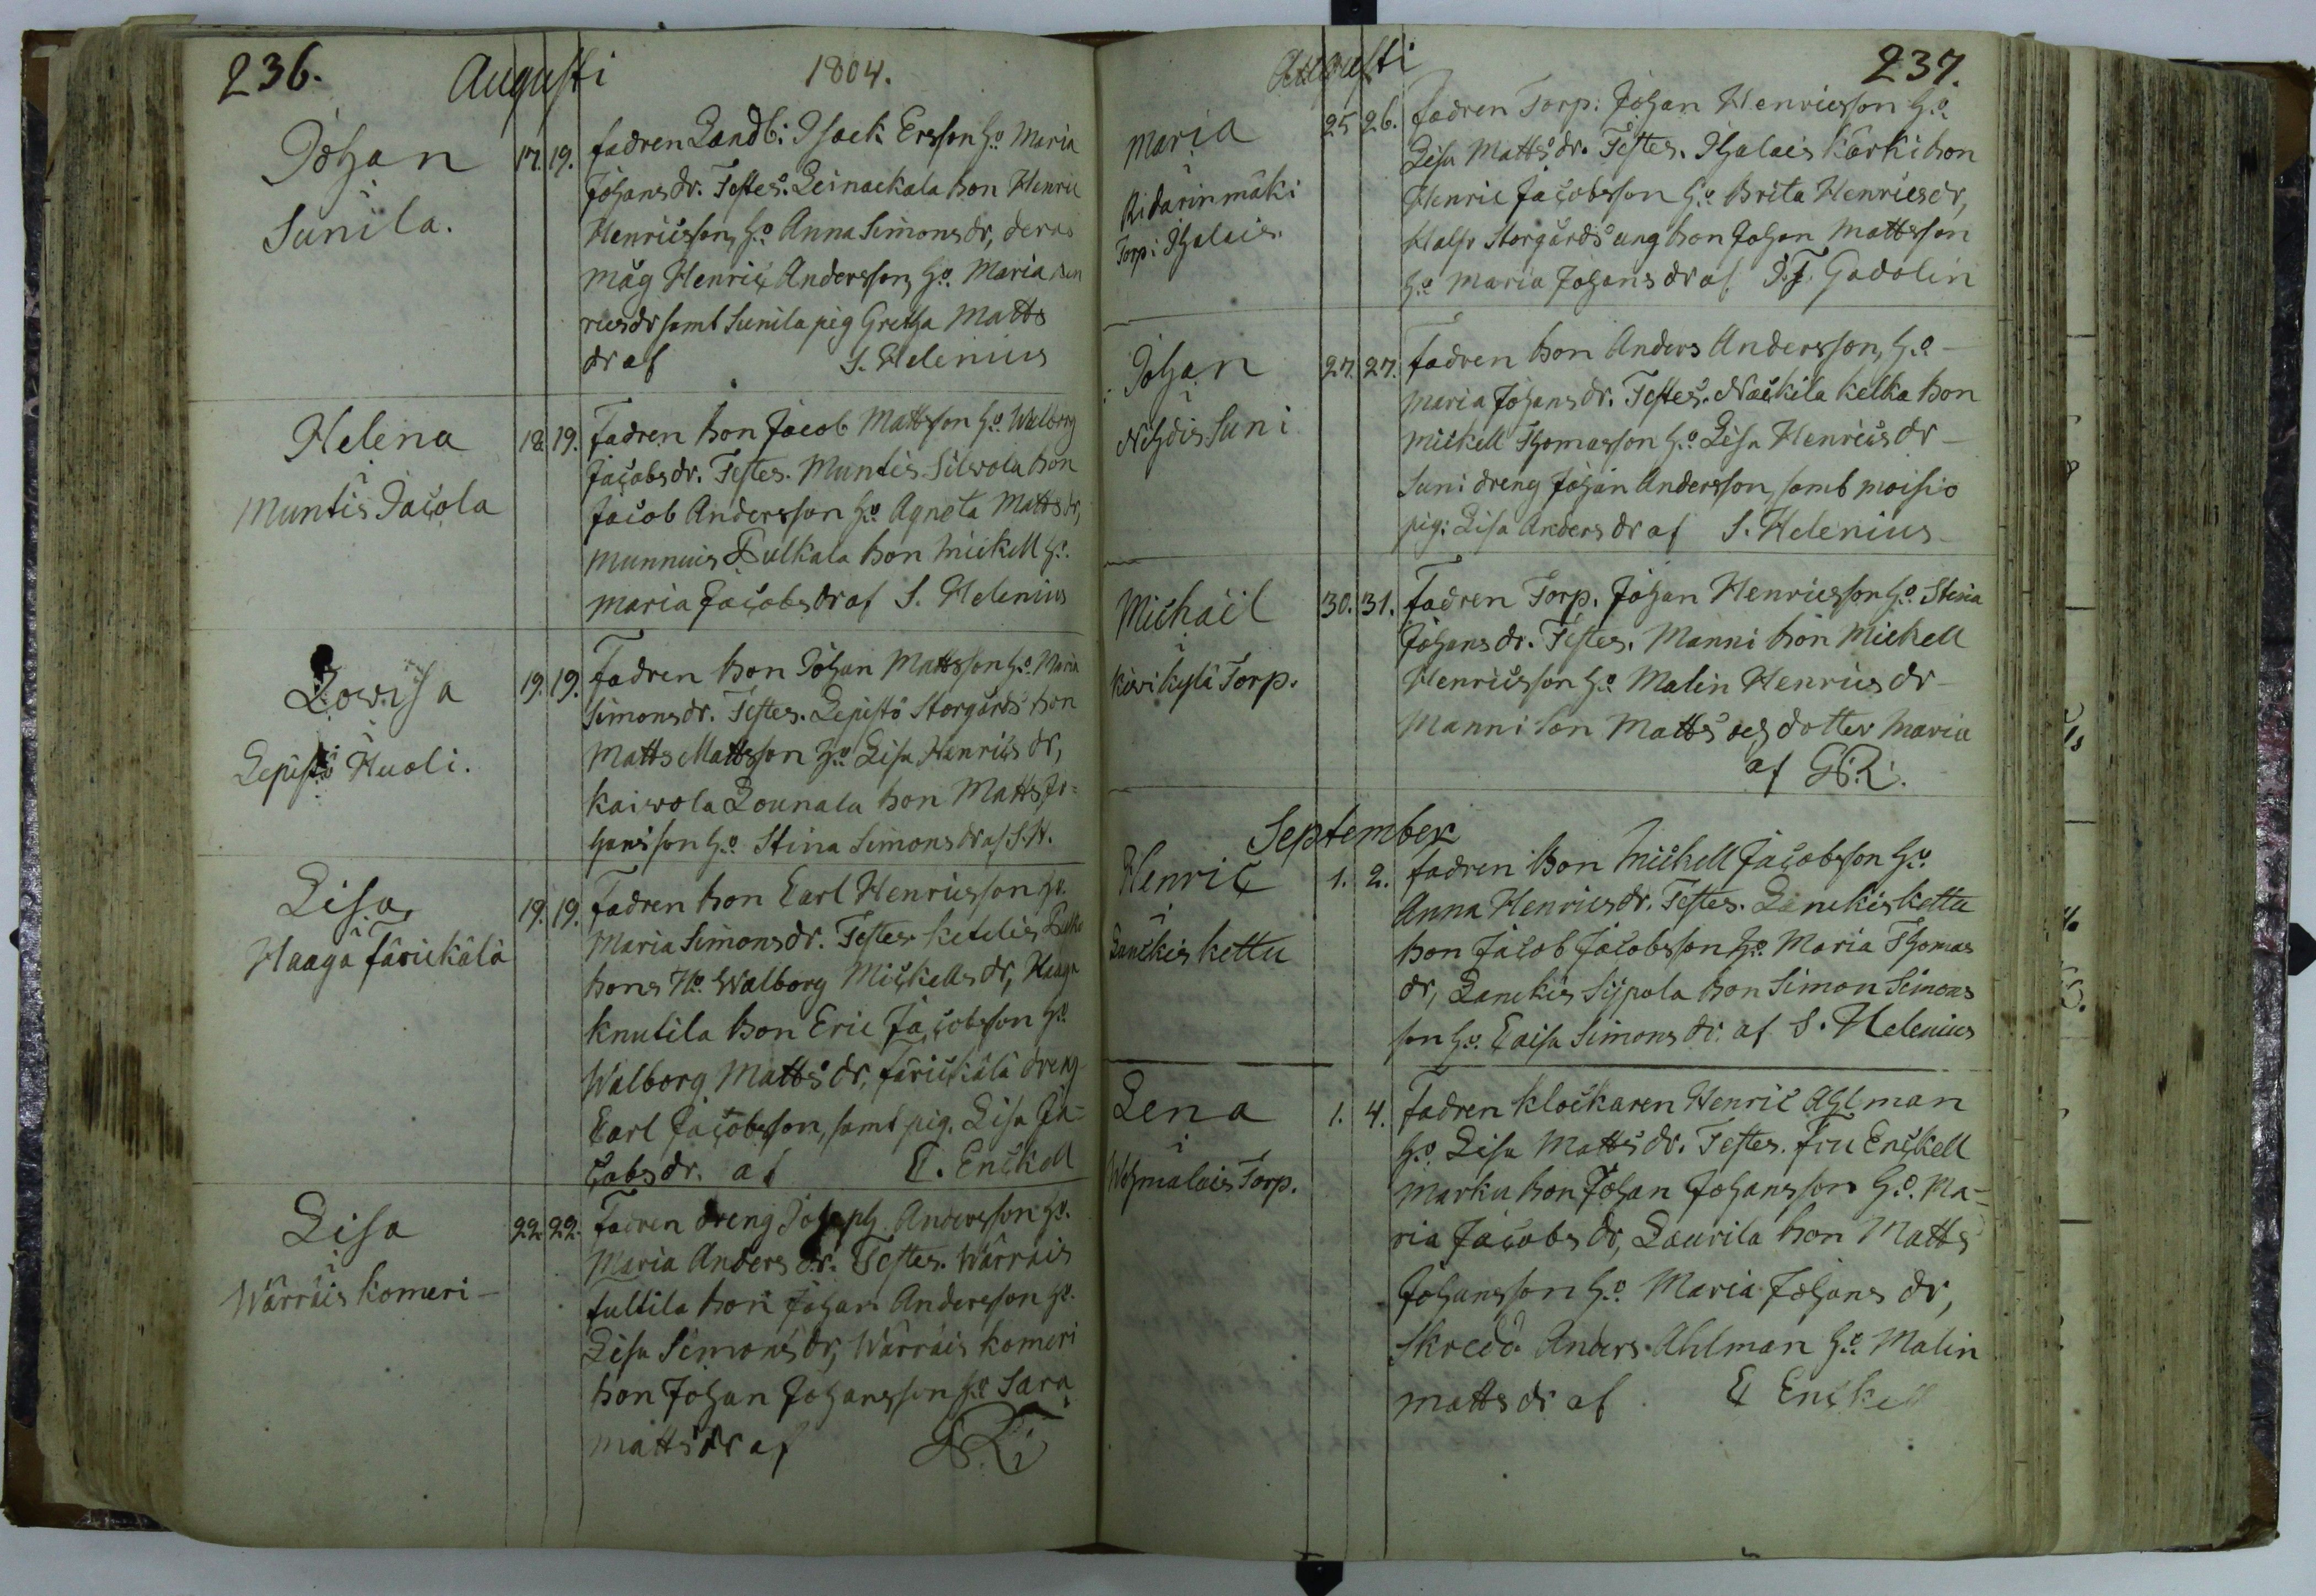 236. Augusti 1804.
Johan
i
Sunila.
17. 19. fadren Landb: Isack Ersson ho Maria
Johansdr. Testes. Leinackala bon Henric
Henricsson, ho Anna Simonsdr, deras
måg Henric Andersson, ho Maria Hen
ricsdr samt Sunila pig Gretha Matts
dr af S. Helenius
Helena
i
Muntis Jacola
18. 19. Fadren bon Jacob Mattsson ho Walborg
Jacobsdr. Testes. Muntis Silvola bon
Jacob Andersson ho Agneta Mattsdr,
Munnuis Pulkala bon Mickell ho
Maria Jacobsdr af S. Helenius
Lovisa
i
Lepistö Huoli.
19. 19. Fadren bon Johan Mattsson ho Maria
Simonsdr. Testes. Lepistö Storgårds bon
Matts Mattsson ho Lisa Henricsdr,
Kaivola Lounala bon Matts Jo=
hansson ho Stina Simonsdr af S.H.
Lisa
i
Haaga Järickälä
19. 19. Fadren bon Carl Henricsson ho
Maria Simonsdr. Testes Ketelis
bons Ho Walborg Mickellsdr, Haaga
Knutila bon Eric Jacobsson ho
Walborg Mattsdr, Järickälä dreng
Carl Jacobsson, samt pig. Lisa Ja=
cobsdr. af C. Enckell
Lisa
i
Wärräis Komeri
22. 22. Fadren dreng Joseph Andersson ho
Maria Andersdr. Testes. Wärräis
Tultila bon Johan Andersson ho
Lisa Simonsdr, Wärräis Komeri
bon Johan Johansson ho Sara
Mattsdr af G.R.
Augusti 237.
Maria
i
Ridarinmäki
Torp: Ihalais.
25 26. Fadren Torp: Johan Henricsson ho
Lisa Mattsdr. Testes. Ihalais Kärki bon
Henric Jacobsson ho Brita Henricsdr,
Halso Storgårds ung bon Johan Mattsson
ho Maria Johansdr af J.F. Gadolin
Johan
i
Nihdis Suni
27. 27. fadren bon Anders Andersson, ho
Maria Johansdr. Testes. Nackila Kelka bon
Mickell Thomasson ho Lisa Henricsdr
Suni dreng Johan Andersson, samt Moisio
pig: Lisa Andersdr af S. Helenius
Michaël
i
Kivikylä Torp.
30. 31. Fadren Torp. Johan Henricsson ho Stina
Johansdr. Testes. Manni bon Mickell
Henricsson ho Malin Henricsdr
Manni son Matts och dotter Maria
af G.R.
September
Henric
i
Lanckis Kettu
1. 2. fadren Bon Mickell Jacobsson ho
Anna Henricsdr. Testes. Lanckis Kettu
bon Jacob Jacobsson ho Maria Thomas
dr, Lanckis Sijpola bon Simon Simons
son ho Caisa Simonsdr. af S. Helenius
Lena
i
Wohmalais Torp.
1. 4. Fadren Klockaren Henric Ahlman
ho Lisa Mattsdr. Testes. Fru Enckell
Marku bon Johan Johansson ho Ma=
ria Jacobsdr, Laurila bon Matts
Johansson ho Maria Johansdr,
Skredd. Anders Ahlman ho Malin
Mattsdr af C Enckell